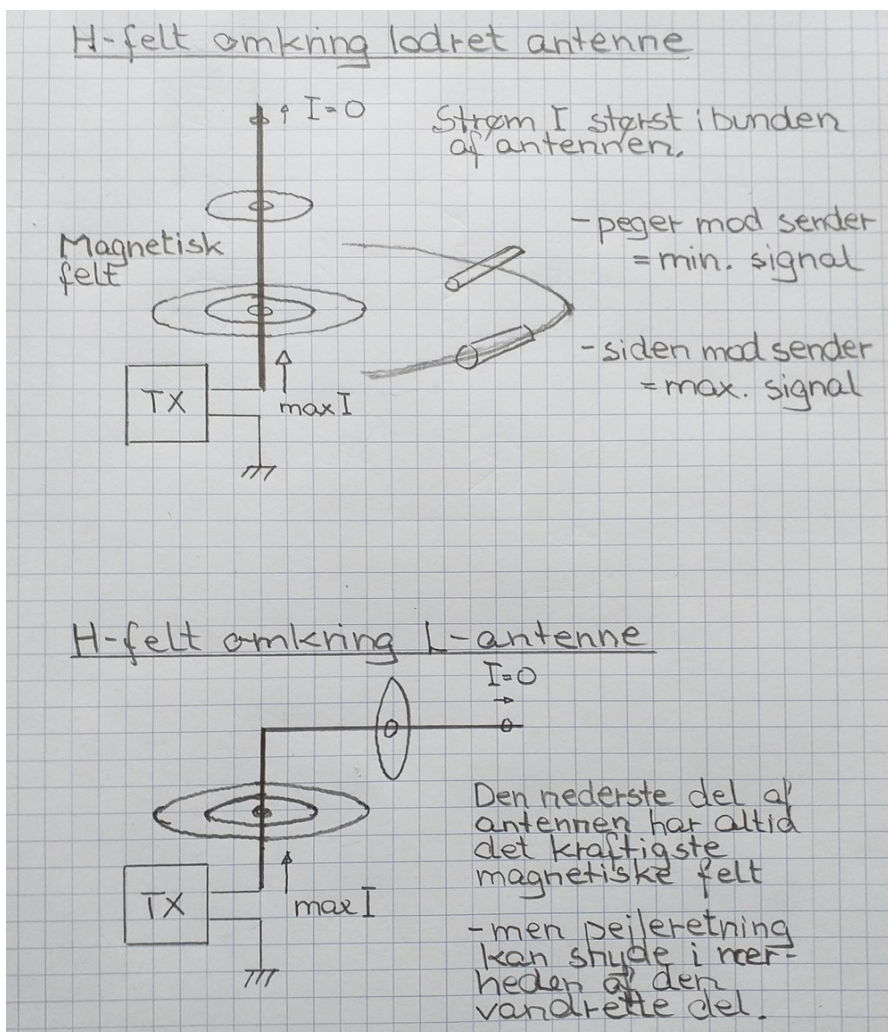 H-felt omkring lodret antenne
I=0
Strøm I størst i bunden
af antennen.
-peger mod sender
=min. signal
Magnetisk
felt
-siden mod sender
=max. signal
TX
max I
H-felt omkring L-antenne
I=0
Den nederste del af
antennen har altid
det kraftigste
magnetiske felt
TX
max I
-men pejleretning
kan snyde i nær-
heden af den
vandrette del.